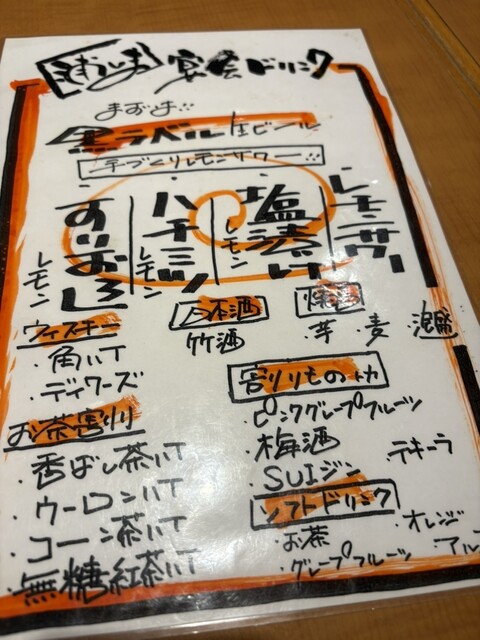 宴会ドリンク
黒ラベル生ビール
手づくりレモンサワー
レモンサワー
塩漬けレモン
ハチミツレモン
すりおろしレモン
日本酒
竹酒
焼酎
・芋 ・麦
ウィスキー
・角ハイ
・ディワーズ
割りものetc
・ピンクグレープフルーツ
・梅酒
・SUIジン
テキーラ
お茶割り
・香ばし茶ハイ
・ウーロンハイ
・コーン茶ハイ
・無糖紅茶ハイ
ソフトドリンク
・お茶
・オレンジ
・グレープフルーツ